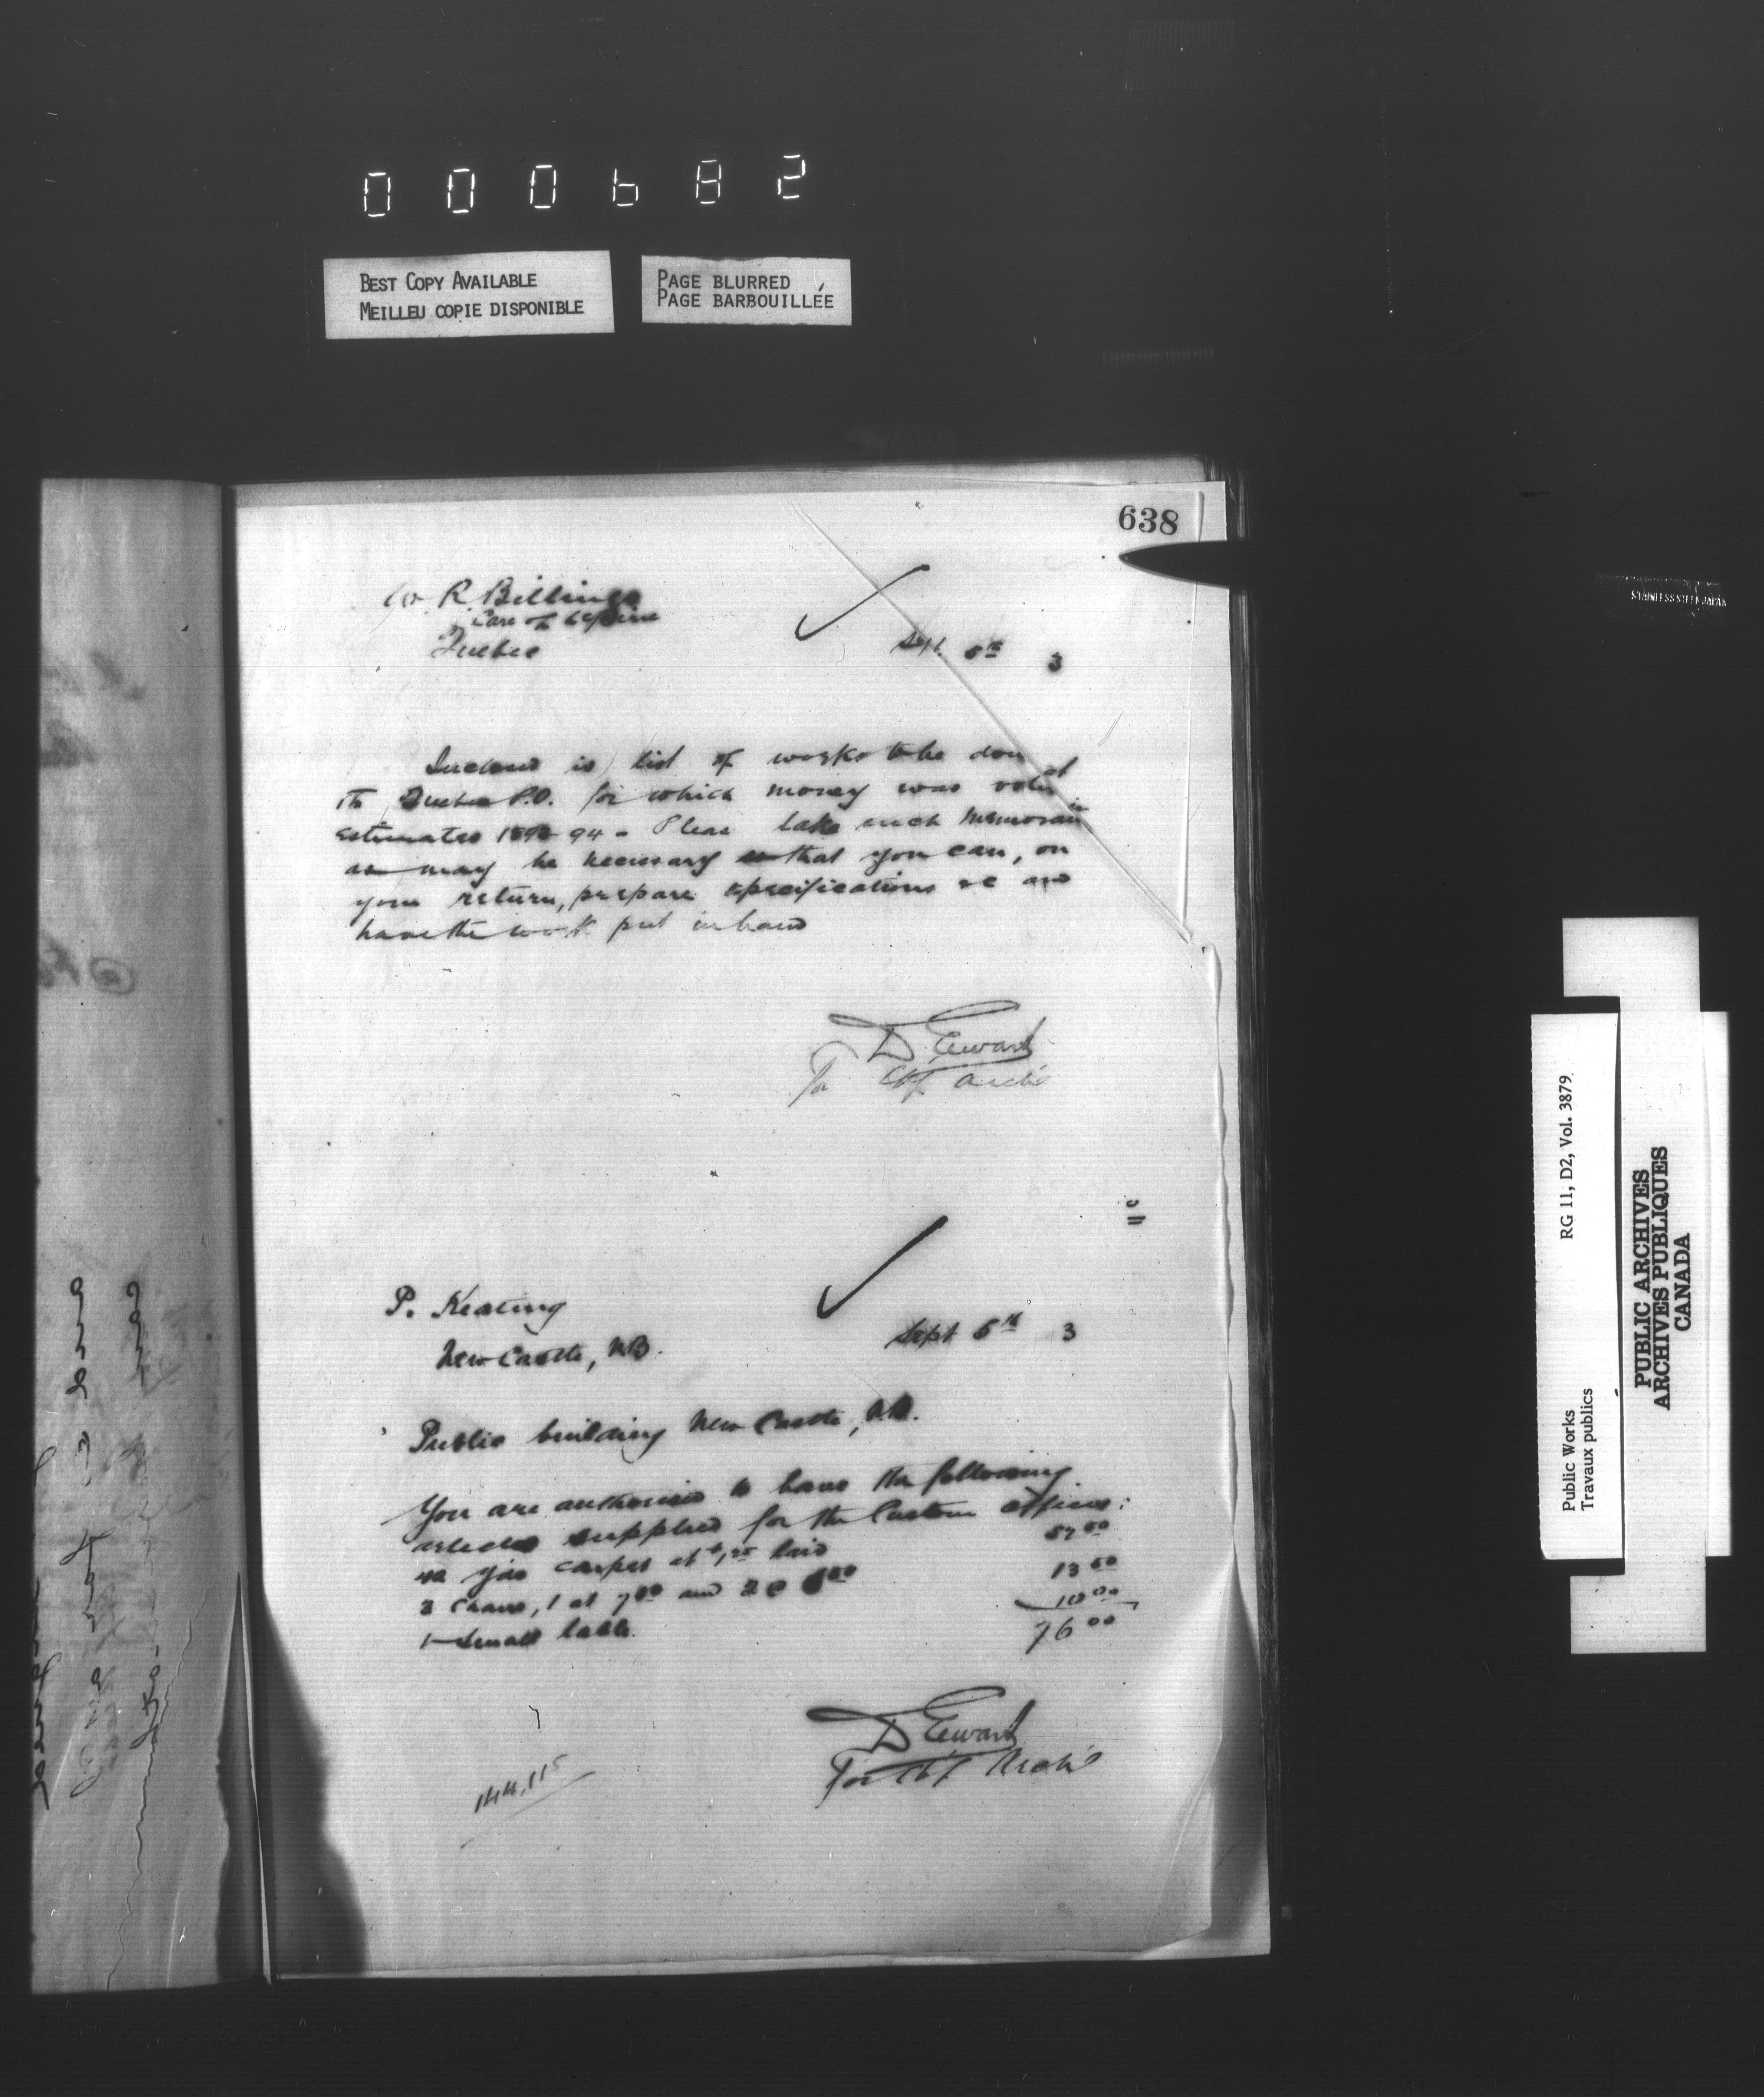 000682
BEST COPY AVAILABLE
MEILLEU COPIE DISPONIBLE
PAGE BLURRED
PAGE BARBOUILLÉE
638
W. R. Billings
Care of
Quebec
Sept. 5th 3
Inclosed is list of works to be done at
the Quebec P.O. for which money was voted in
estimates 1893 94 - Please take such memoran
as may be necessary so that you can, on
your return, prepare specifications &c and
have the work put in hand
D Ewart
For Chf Archt
P. Keating
New Castle, N.B.
Sept 5th 3
Public building New Castle, N.B.
You are authorised to have the following
articles supplied for the Custom offices:
42 yds carpet at 1,25 laid
3 chairs, 1 at 7 00 and 2 @
13 00
1 small table.
10 00
76 00
D Ewart
For Chf Archt
144,115
STAINLESS STEEL JAPAN
RG 11, D2, Vol. 3879
Public Works
Travaux publics
PUBLIC ARCHIVES
ARCHIVES PUBLIQUES
CANADA